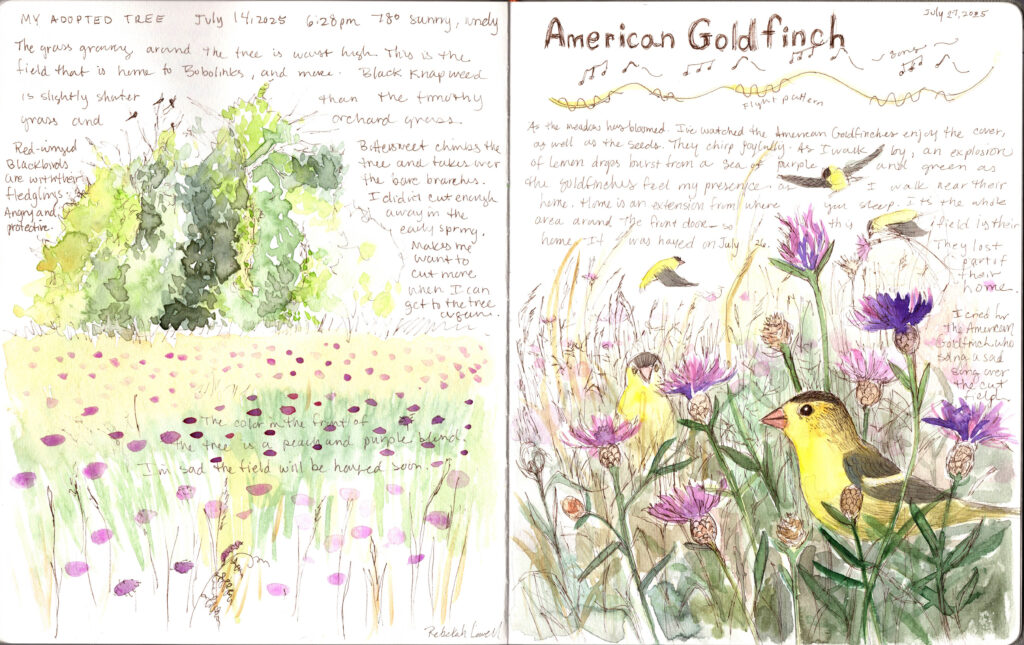 MY ADOPTED TREE July 14, 2025 6:28pm 78° sunny, windy
The grass growing around the tree is waist high. This is the
field that is home to Bobolinks, and more. Black Knapweed
is slightly shorter than the timothy
grass and orchard grass.
Red-winged
Blackbirds
are with their
fledglings.
Angry and
protective.
Bittersweet climbs the
tree and takes over
the bare branches.
I didn't cut enough
away in the
early spring.
Makes me
want to
cut more
when I can
get to the tree
again.
The color in the front of
the tree is a peach and purple blend.
I'm sad the field will be hayed soon.
Rebekah Lowell
July 27, 2025
American Goldfinch
~ song ~
Flight pattern
As the meadow has bloomed. I've watched the American Goldfinches enjoy the cover,
as well as the seeds. They chirp joyfully. As I walk by, an explosion
of lemon drops burst from a sea of purple and green as
the goldfinches feel my presence as I walk near their
home. Home is an extension from where you sleep. It's the whole
area around the front door - so this field is their
home. It was hayed on July 26. They lost
part of
their
home.
I cried for
the American
Goldfinch who
sang a sad
song over
the cut
field.